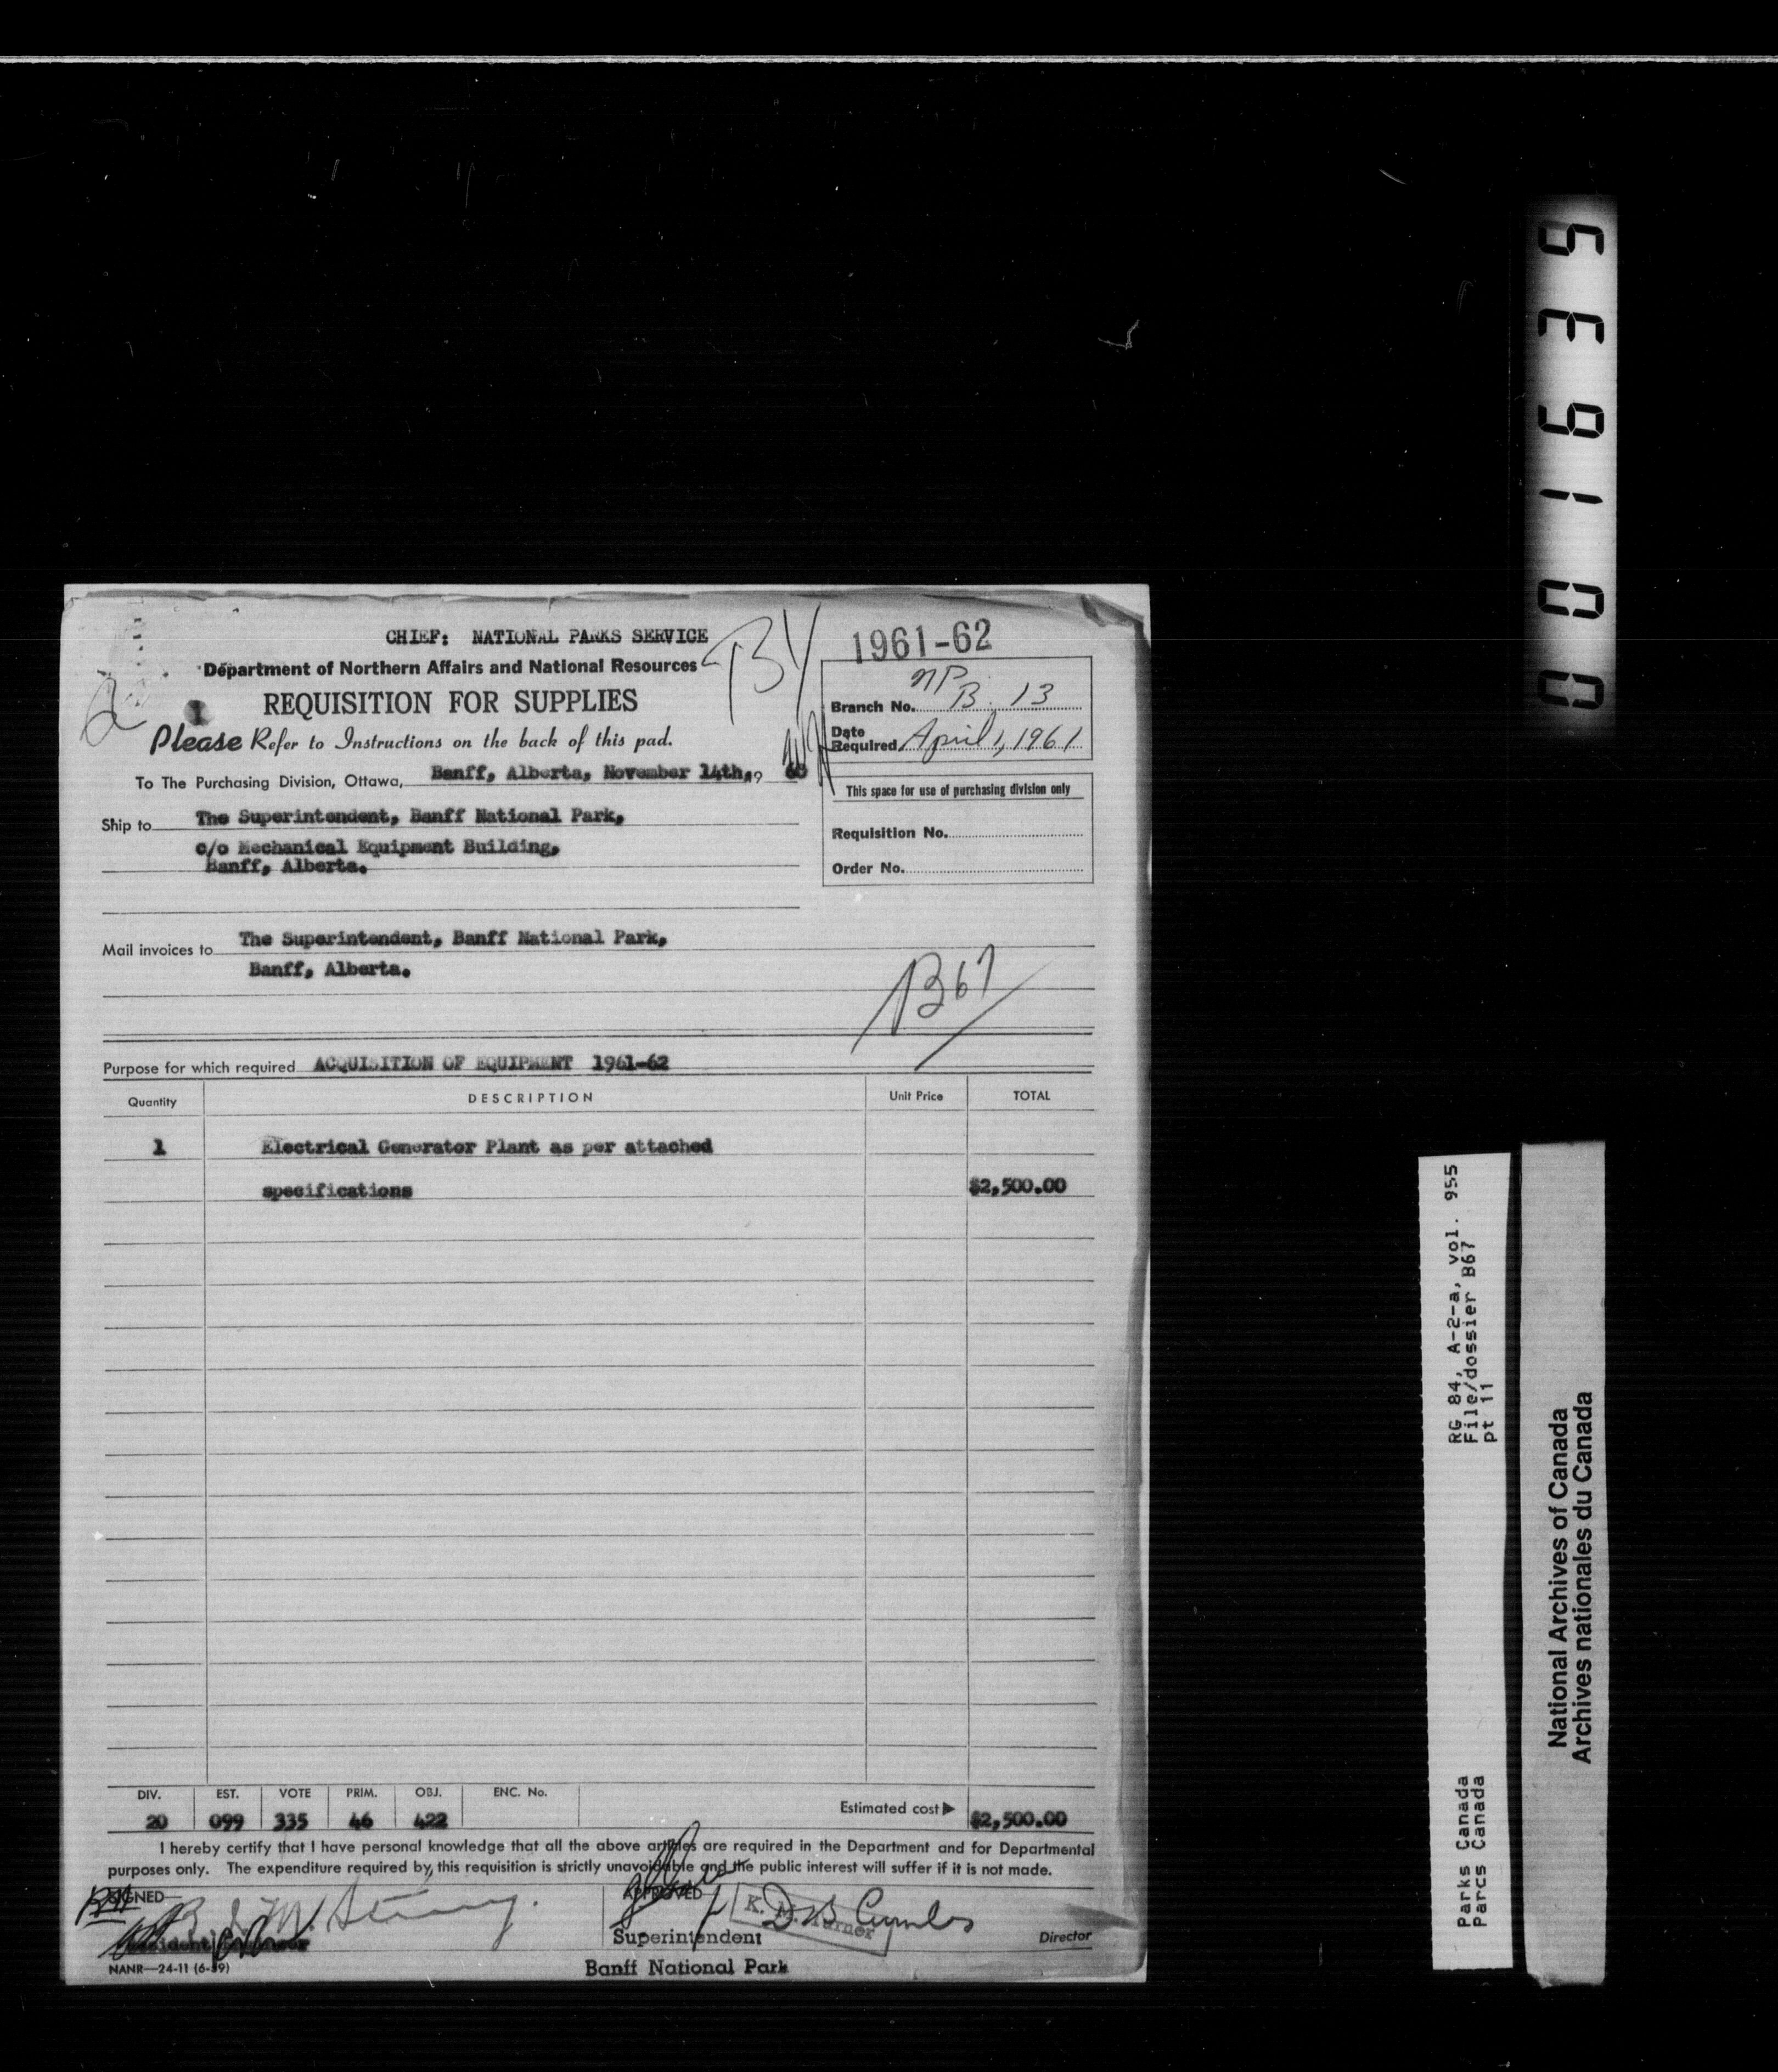 CHIEF: NATIONAL PARKS SERVICE
Department of Northern Affairs and National Resources
REQUISITION FOR SUPPLIES
Please Refer to Instructions on the back of this pad.
1961-62
Branch No. NP B. 13
Date
Required April 1, 1961
To The Purchasing Division, Ottawa, Banff, Alberta, November 14th, 19 60
This space for use of purchasing division only
Requisition No.
Order No.
Ship to The Superintendent, Banff National Park,
c/o Mechanical Equipment Building,
Banff, Alberta.
Mail invoices to The Superintendent, Banff National Park,
Banff, Alberta.
B67
Purpose for which required ACQUISITION OF EQUIPMENT 1961-62
Quantity DESCRIPTION Unit Price TOTAL
1 Electrical Generator Plant as per attached
specifications $2,500.00
DIV. EST. VOTE PRIM. OBJ. ENC. No.
20 099 335 46 422
Estimated cost $2,500.00
I hereby certify that I have personal knowledge that all the above articles are required in the Department and for Departmental
purposes only. The expenditure required by this requisition is strictly unavoidable and the public interest will suffer if it is not made.
SIGNED
APPROVED
K. M. Turner
Superintendent
Director
Banff National Park
NANR—24-11 (6-59)
001639
RG 84, A-2-a, vol. 955
File/dossier B67
pt 11
Parks Canada
Parcs Canada
National Archives of Canada
Archives nationales du Canada